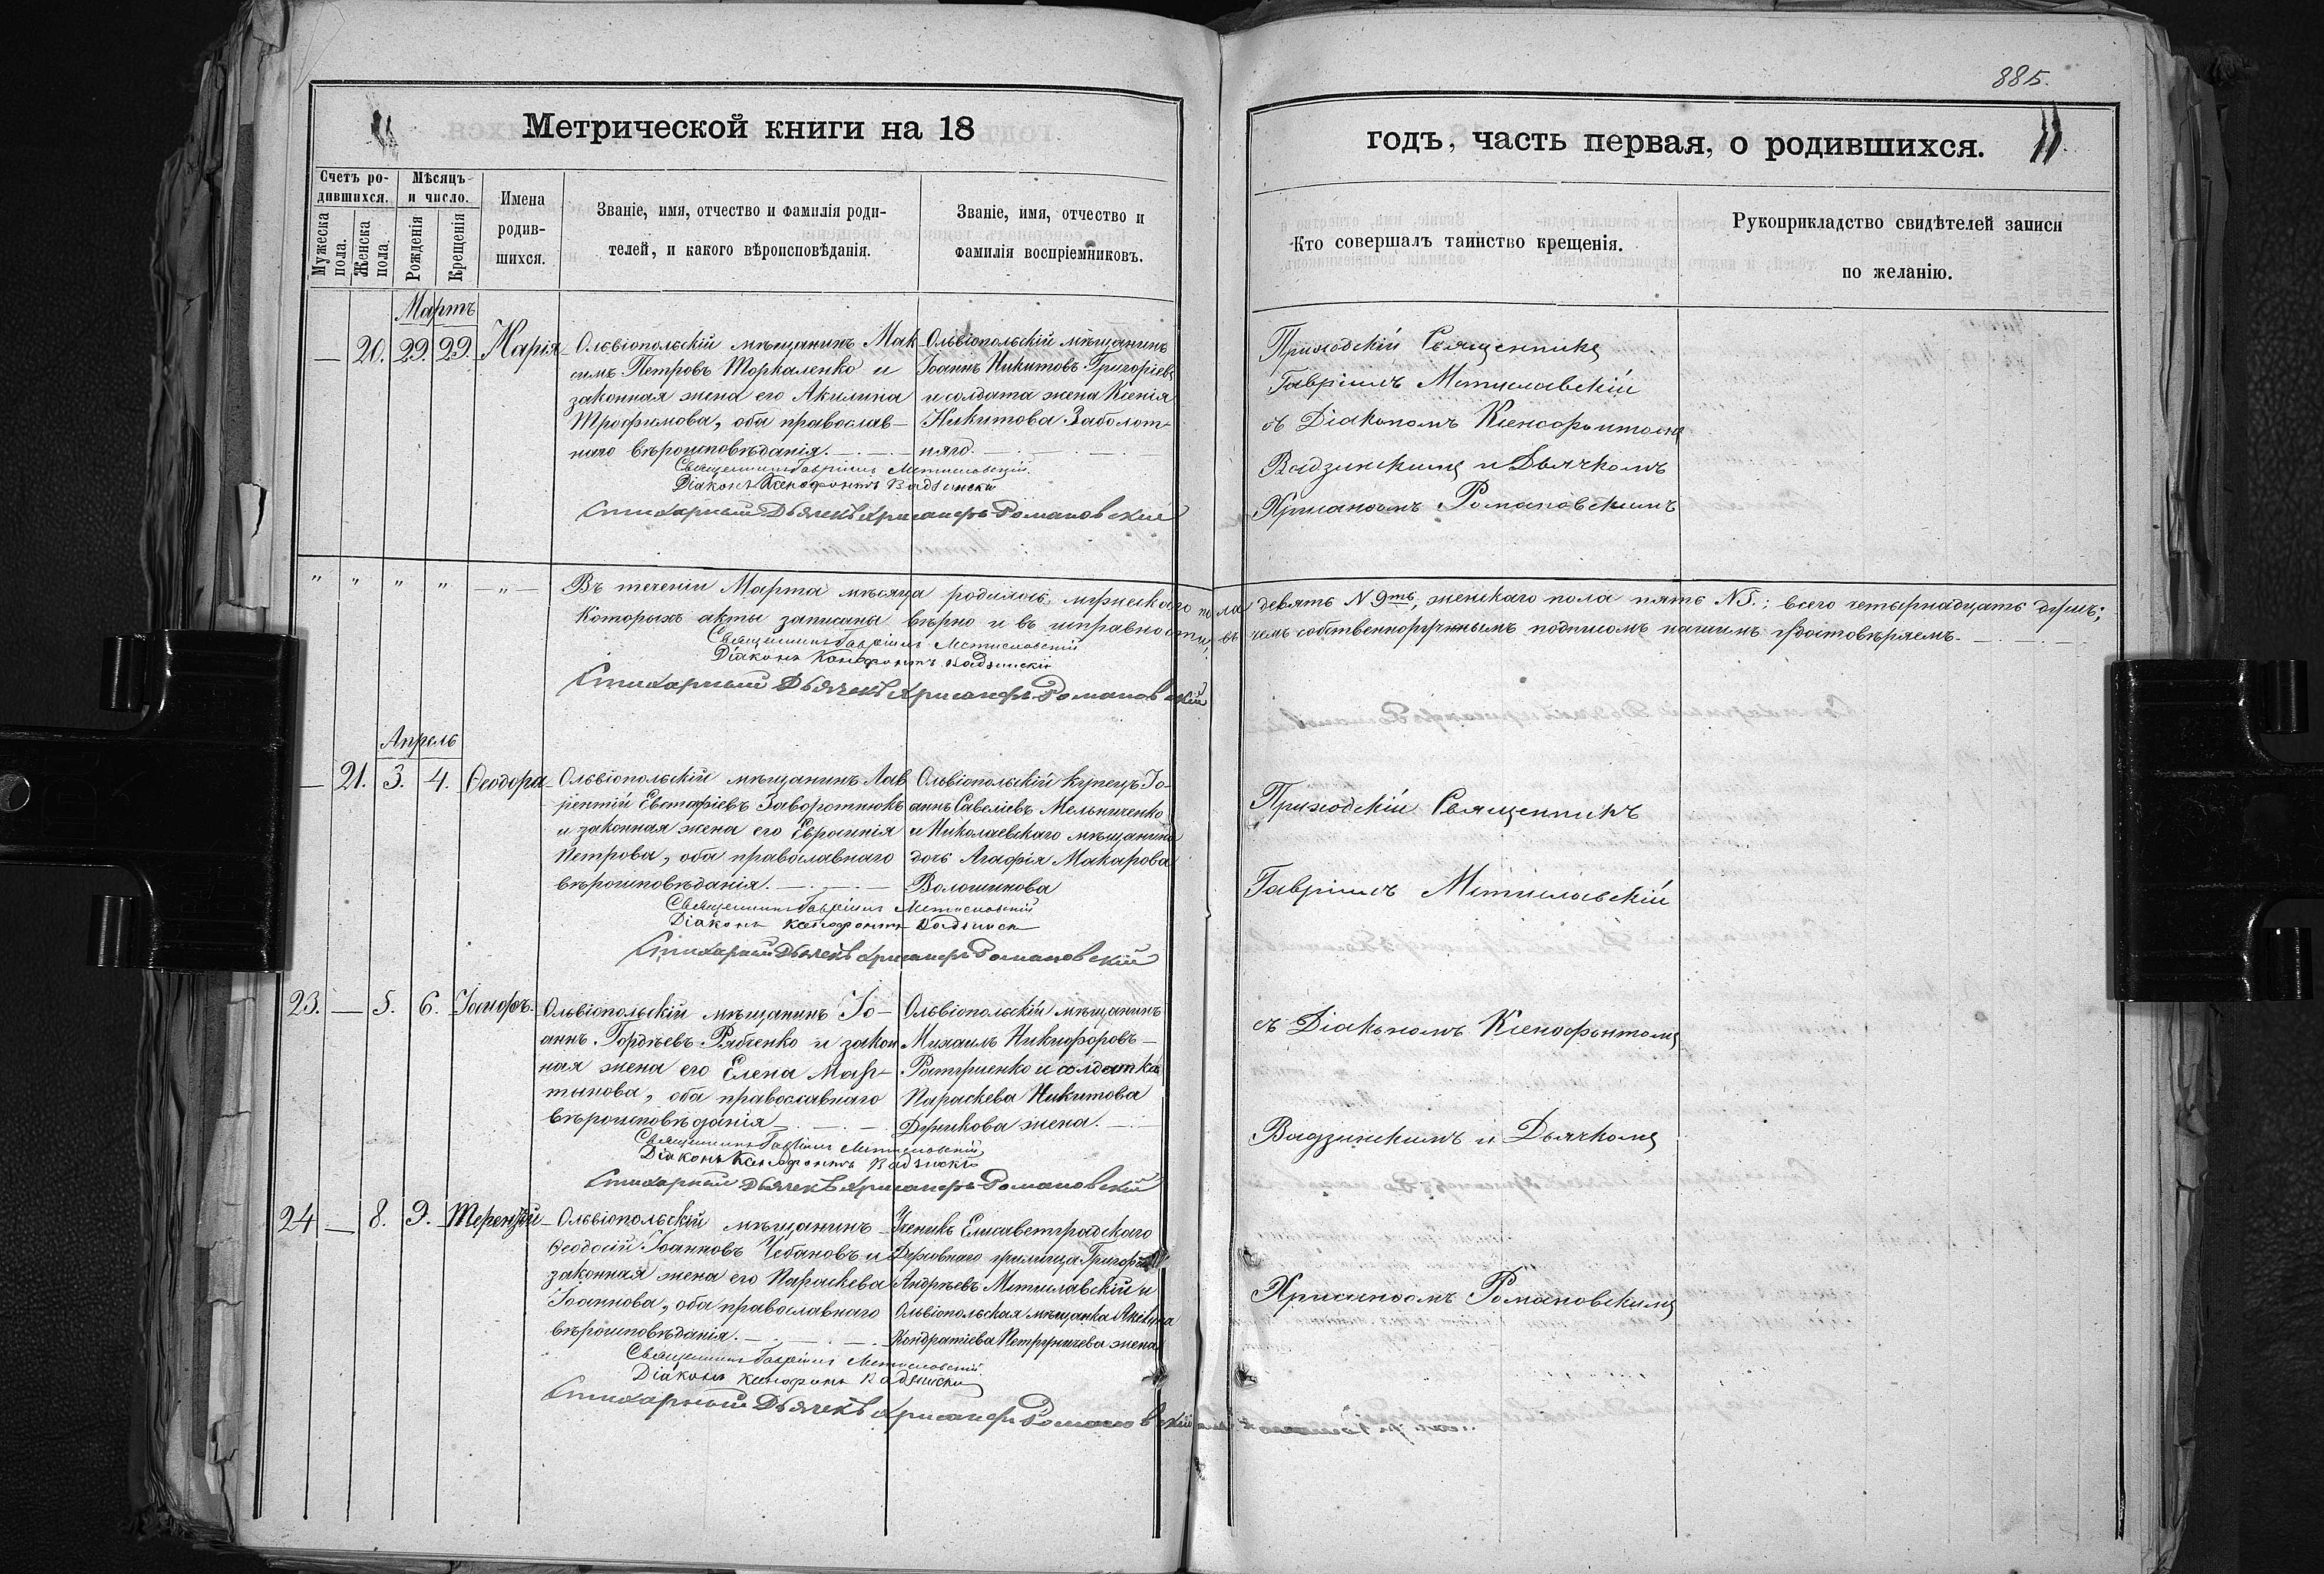 885.
11
Метрической книги на 18
годъ, часть первая, о родившихся.
11
Счетъ ро-
дившихся.
Мѣсяцъ
и число.
Мужеска
пола.
Женска
пола.
Рожденія
Крещенія
Имена
родив-
шихся.
Званіе, имя, отчество и фамилія роди-
телей, и какого вѣроисповѣданія.
Званіе, имя, отчество и
фамилія воспріемниковъ.
Кто совершалъ таинство крещенія.
Рукоприкладство свидѣтелей записи
по желанію.
Мартъ
— 20. 29. 29. Марія
Ольвіопольскій мѣщанинъ Мак-
симъ Петровъ Торкаленко и
законная жена его Акилина
Трофимова, оба православ-
наго вѣроисповѣданія.
Ольвіопольскій мѣщанинъ
Іоаннъ Никитовъ Григоріевъ
и солдата жена Ксенія
Никитова Заболот-
няго.
Священникъ Гавріилъ Мстиславскій
Діаконъ Ксенофонтъ Вадзинскій
Стихарный Дьячекъ Хрисанфъ Романовскій
Приходскій Священникъ
Гавріилъ Мстиславскій
съ Діакономъ Ксенофонтомъ
Вадзинскимъ и Дьячкомъ
Хрисанфомъ Романовскимъ
" " " " — " —
Въ теченіи Марта мѣсяца родилось мужескаго пола девять N 9ть, женскаго пола пять N 5.; всего четырнадцать душъ;
Которыхъ акты записаны вѣрно и въ исправности, въ чемъ собственноручнымъ подписомъ нашимъ удостовѣряемъ.
Священникъ Гавріилъ Мстиславскій
Діаконъ Ксенофонтъ Вадзинскій
Стихарный Дьячекъ Хрисанфъ Романовскій
Апрель
— 21. 3. 4. Ѳеодора
Ольвіопольскій мѣщанинъ Лав-
рентій Евстафіевъ Заворотнюкъ
и законная жена его Евросинія
Петрова, оба православнаго
вѣроисповѣданія.
Ольвіопольскій купецъ Іо-
аннъ Савеліевъ Мельниченко
и Николаевскаго мѣщанина
дочь Агафія Макарова
Волошинова
Священникъ Гавріилъ Мстиславскій
Діаконъ Ксенофонтъ Вадзинск
Стихарный Дьячекъ Хрисанфъ Романовскій
Приходскій Священникъ
Гавріилъ Мстиславскій
23. — 5. 6. Іосифъ.
Ольвіопольскій мѣщанинъ Іо-
аннъ Гордѣевъ Рябченко и закон
ная жена его Елена Мар-
тынова, оба православнаго
вѣроисповѣданія
Ольвіопольскій мѣщанинъ
Михаилъ Никифоровъ
и солдатка
Параскева Никитова
жена.
Священникъ Гавріилъ Мстиславскій
Діаконъ Ксенофонтъ Вадзинскій
Стихарный Дьячекъ Хрисанфъ Романовскій
съ Діакономъ Ксенофонтомъ
Вадзинскимъ и Дьячкомъ
24 — 8. 9. Терентій
Ольвіопольскій мѣщанинъ
Ѳеодосій Іоанновъ Чебановъ и
законная жена его Параскева
Іоаннова, оба православнаго
вѣроисповѣданія.
Ученикъ Елисаветградскаго
Духовнаго училища Григорій
Андреевъ Мстиславскій и
Ольвіопольская мѣщанка Акилина
Кондратіева Петруничева жена
Священникъ Гавріилъ Мстиславскій
Діаконъ Ксенофонтъ Вадзински
Стихарный Дьячекъ Хрисанфъ Романовскій
Хрисанфомъ Романовскимъ